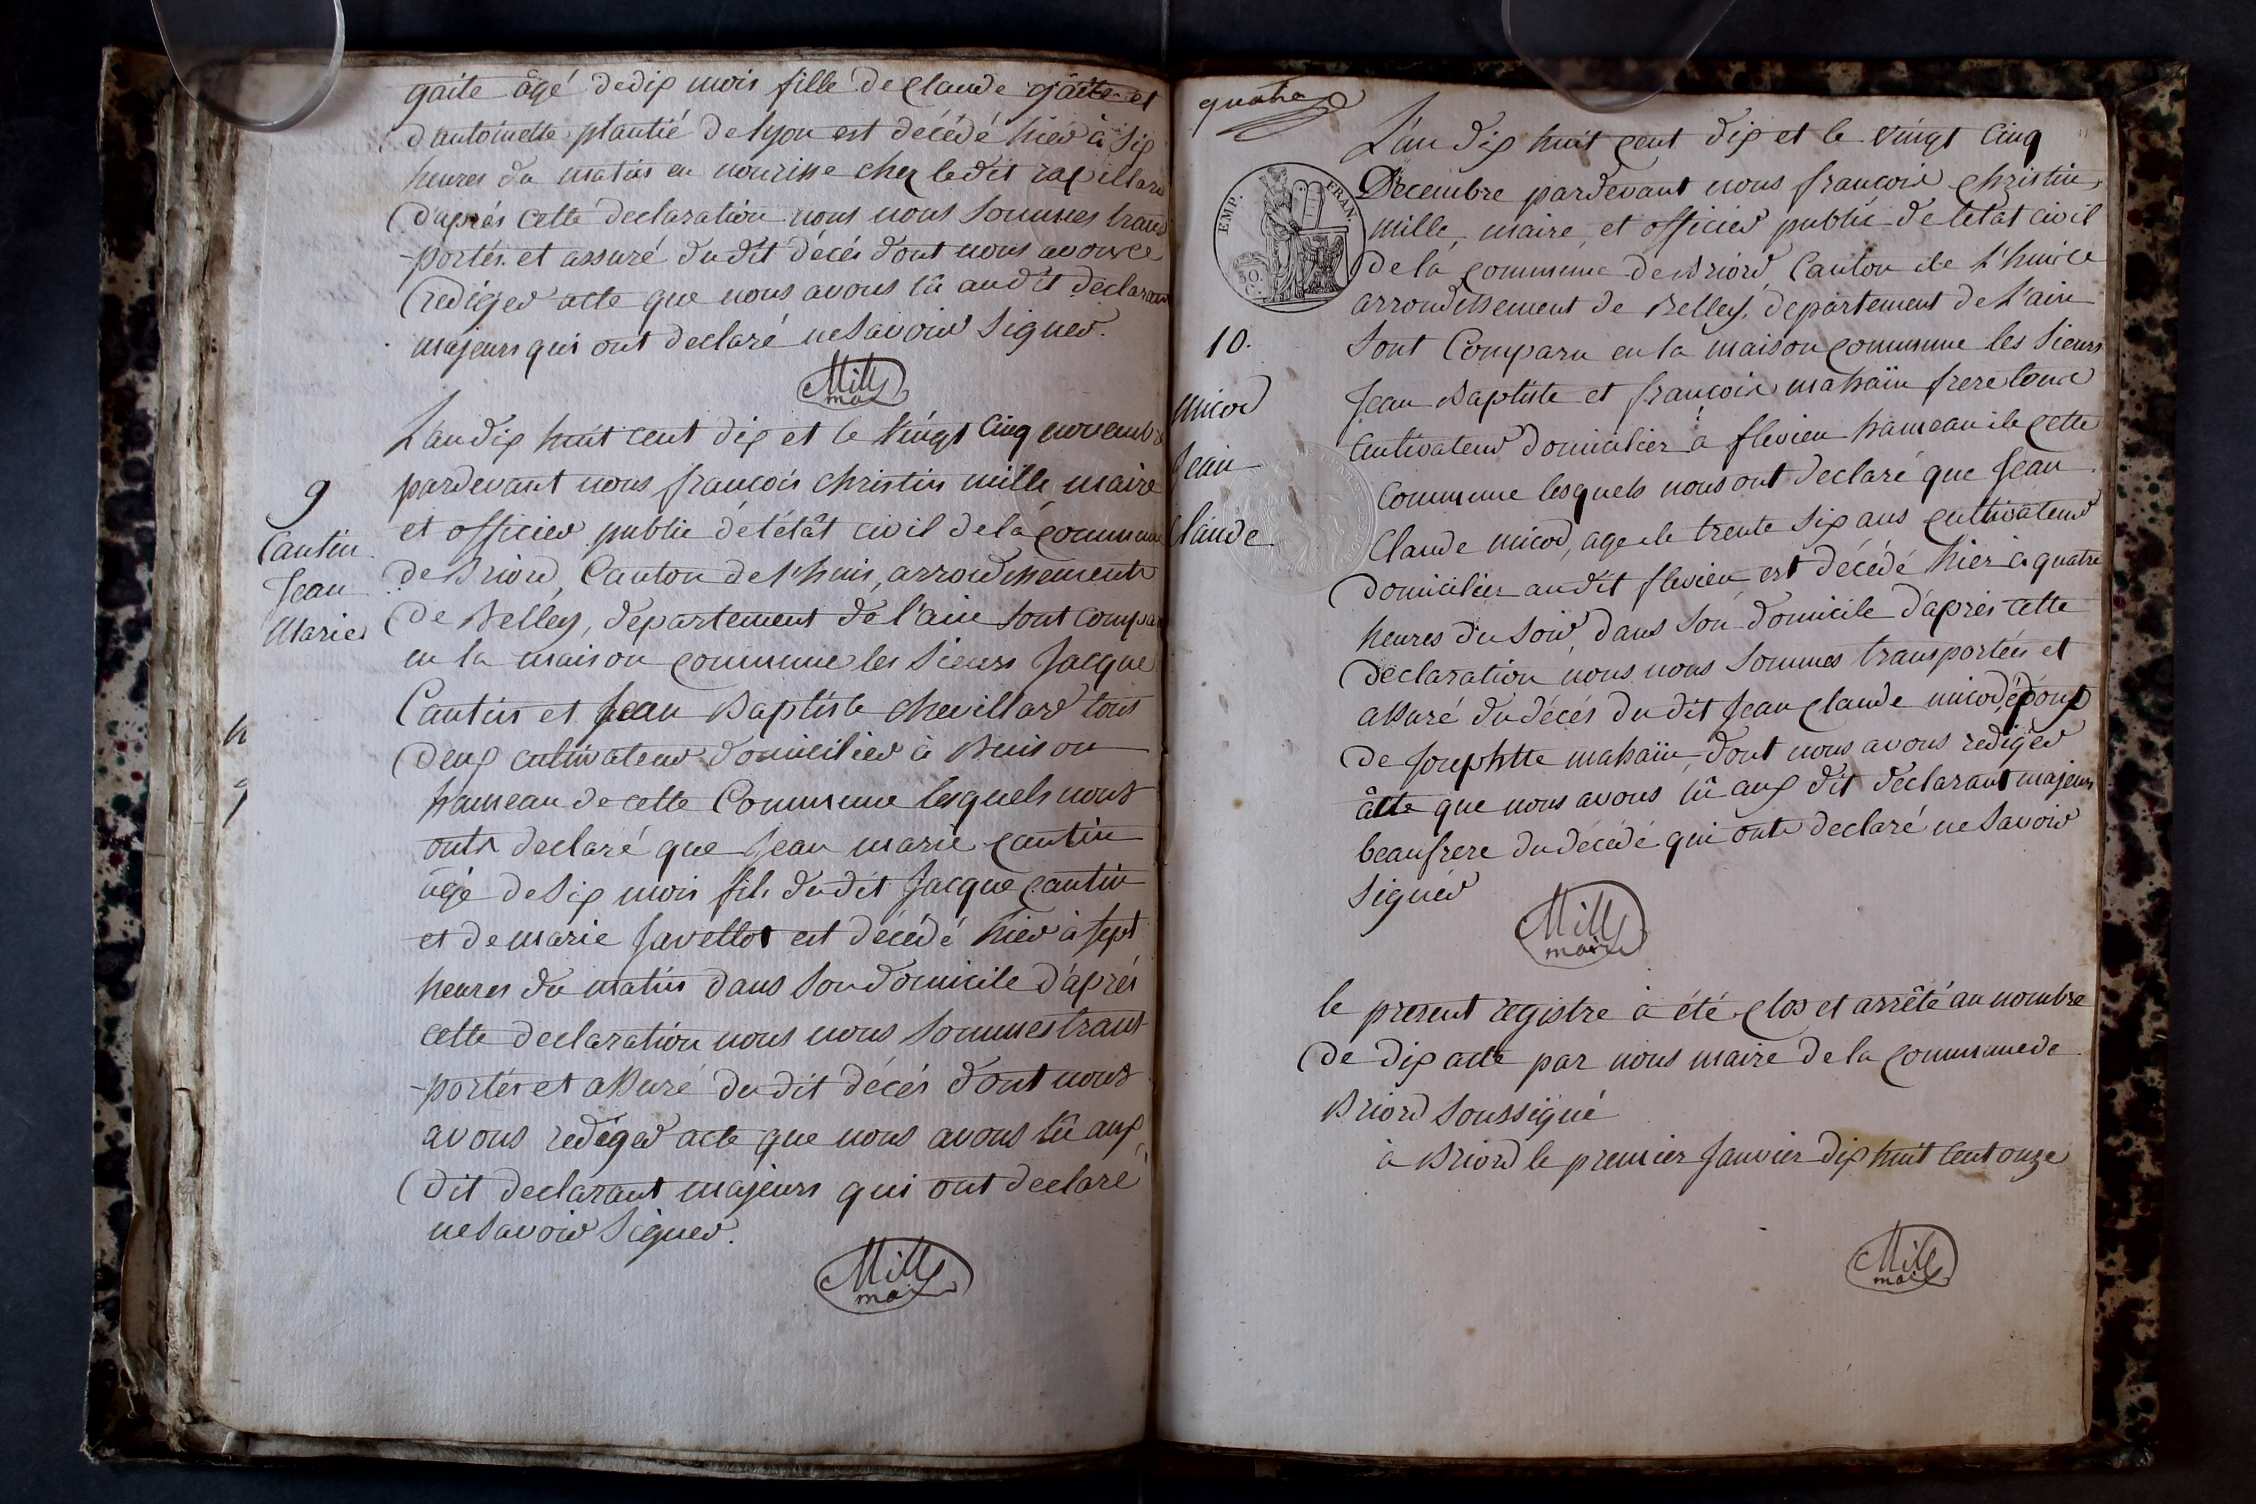 gaite âgé de dix mois fille de claude gaite et
d'antoinette plantié de lyon est décédé hier à six
heures du matin en nourisse chez le dit rapillard
d'aprés cette declaration nous nous sommes trans
-portés et assuré du dit décés dont nous avons ce
rediger acte que nous avons lû audit declarant
majeurs qui ont declaré ne savoir signer.
Mille
maire
L'an dix huit cent dix et le vingt cinq novembre
9
pardevant nous françois christin mille maire
et officier public de l'état civil de la commune
Cantin
Jean
Marie
de Briord, Canton de l'huis, arrondissement
de Belley, département de l'ain sont comparu
en la maison commune les sieurs Jacque
Cantin et Jean Baptiste chevillard tous
deux cultivateur domicilier à Buison
hameau de cette Commune lesquels nous
ont declaré que Jean marie cantin
âgé de six mois fils du dit Jacque cantin
et de marie Javellot est décédé hier à sept
heures du matin dans son domicile d'aprés
cette declaration nous nous sommes trans
-portés et assuré du dit décés dont nous
avons rediger acte que nous avons lû aux
dit declarant majeurs qui ont declaré
ne savoir signer.
Mille
maire
quatre
EMP. FRAN.
50 C.
L'an dix huit cent dix et le vingt cinq
Décembre pardevant nous francois christin
mille, maire, et officier public de l'etat civil
de la commune de Briord, Canton de L'huis
arrondissement de Belley, departement de L'ain
10.
Sont Comparu en la maison commune les sieurs
micod
Jean
Claude
Jean Baptiste et francois mahaïn frere tous
Cultivateur domicilier à flevieu hameau de cette
Commune lesquels nous ont declaré que Jean
Claude micod, age de trente six ans cultivateur
domicilier audit flevieu est décédé hier à quatre
heures du soir, dans son domicile d'aprés cette
déclaration nous nous sommes transportées et
assuré du décés du dit Jean claude micod époux
de Josephtte mahaïn, dont nous avons rediger
âtte que nous avons lû aux dit déclarant majeurs
beaufrere du décédé qui ont declaré ne savoir
signér
Mille
maire
le present registre à été clos et arrêté au nombre
de dix acte par nous maire de la commune de
Briord soussigné
à Briord le premier Janvier dix huit cent onze
Mille
maire